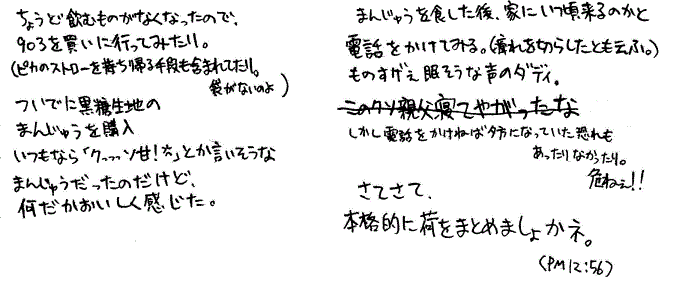 ちょうど飲むものがなくなったので、
903を買いに行ってみたり。
(ピカのストローを持ち帰る手段も含まれてたり。
袋がないのよ)
ついでに黒糖生地の
まんじゅうを購入
いつもなら「クっっっソ甘!ﾊ」とか言いそうな
まんじゅうだったのだけど、
何だかおいしく感じた。
まんじゅうを食した後、家にいつ頃来るのかと
電話をかけてみる。(痺れを切らしたとも云ふ。)
ものすげぇ眠そうな声のダディ。
このクソ親父寝てやがったな
しかし電話をかけねば夕方になっていた恐れも
あったりなかったり。
危ねぇ!!
さてさて、
本格的に荷をまとめましょかネ。
(PM12:56)